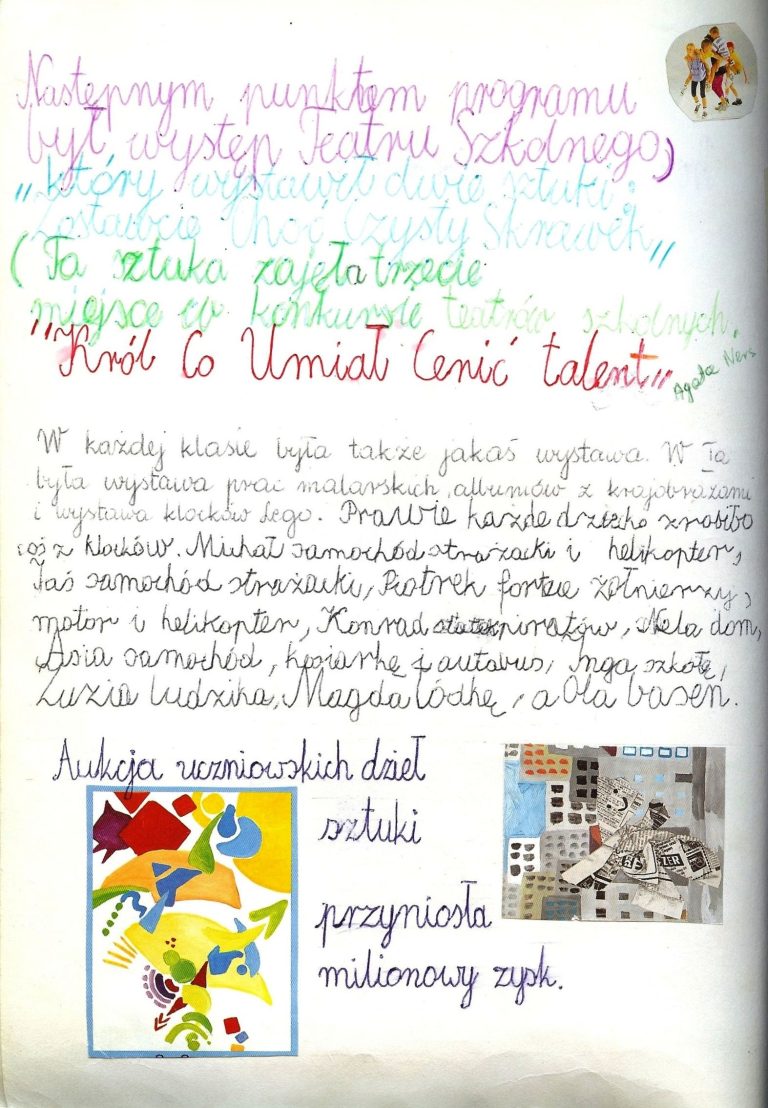 Następnym punktem programu
był występ Teatru Szkolnego,
który wystawił dwie sztuki:
"Zostawcie Choć Czysty Skrawek"
(Ta sztuka zajęła trzecie
miejsce w konkursie teatrów szkolnych.
"Król Co Umiał Cenić talent"
Agata
W każdej klasie była także jakaś wystawa. W Ia
była wystawa prac malarskich, albumów z krajobrazami
i wystawa klocków Lego. Prawie każde dziecko zrobiło
coś z klocków. Michał samochód strażacki i helikopter,
Jaś samochód strażacki, Piotrek fortec żołnierzy,
motor i helikopter, Konrad statek piratów, Nela dom,
Asia samochód, kosiarkę i autobus, Inga szkołę,
Zuzia ludzika, Magda łódkę, a Ola basen.
Aukcja uczniowskich dzieł
sztuki
przyniosła
milionowy zysk.